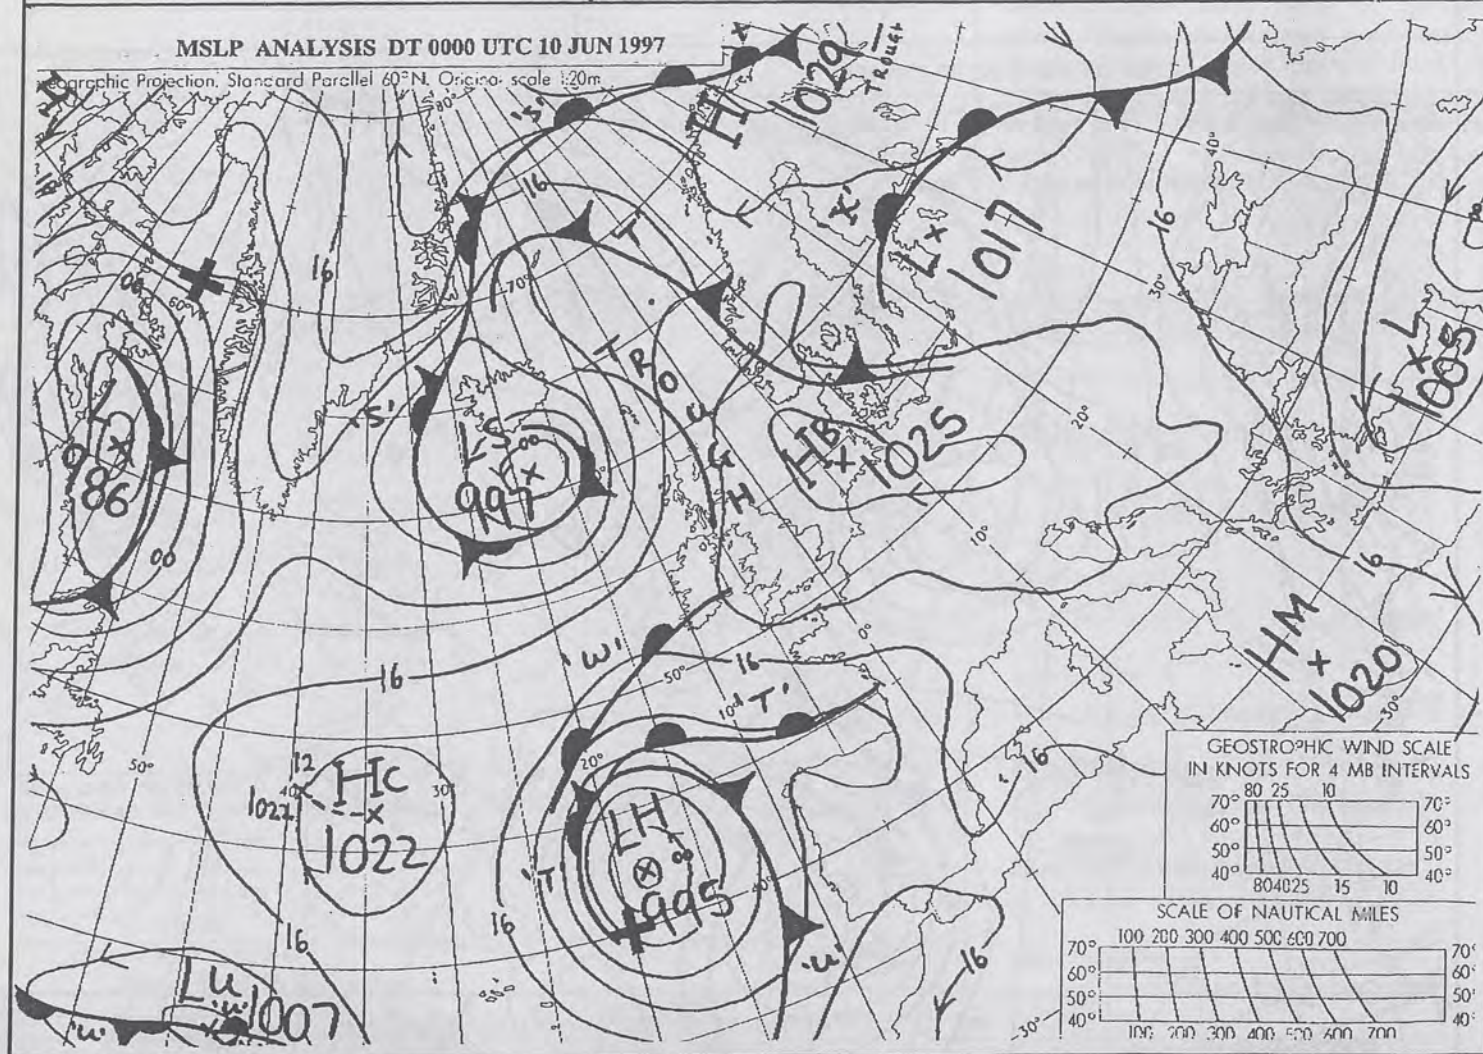 MSLP ANALYSIS DT 0000 UTC 10 JUN 1997
Geographic Projection, Standard Parallel 60°N. Original scale 1:20m
80°
'S'
16
HI
1029
TROUGH
X
'T'
'X'
L
1017
16
40°
30°
18
16
00
60°
70°
TROUGH
'S'
L
986
00
LS
00
997
HB
1025
20°
10°
0°
L
1005
16
HM
1020
30°
16
'W'
50°
16
10°
'T'
16
50°
12
40
1022
HC
1022
30°
20°
LH
00
995
40°
'T'
16
16
'U'
16
30°
LU
1007
'U'
'U'
GEOSTROPHIC WIND SCALE
IN KNOTS FOR 4 MB INTERVALS
80 25 10
70° 70°
60° 60°
50° 50°
40° 40°
80 40 25 15 10
SCALE OF NAUTICAL MILES
100 200 300 400 500 600 700
70° 70°
60° 60°
50° 50°
40° 40°
100 200 300 400 500 600 700